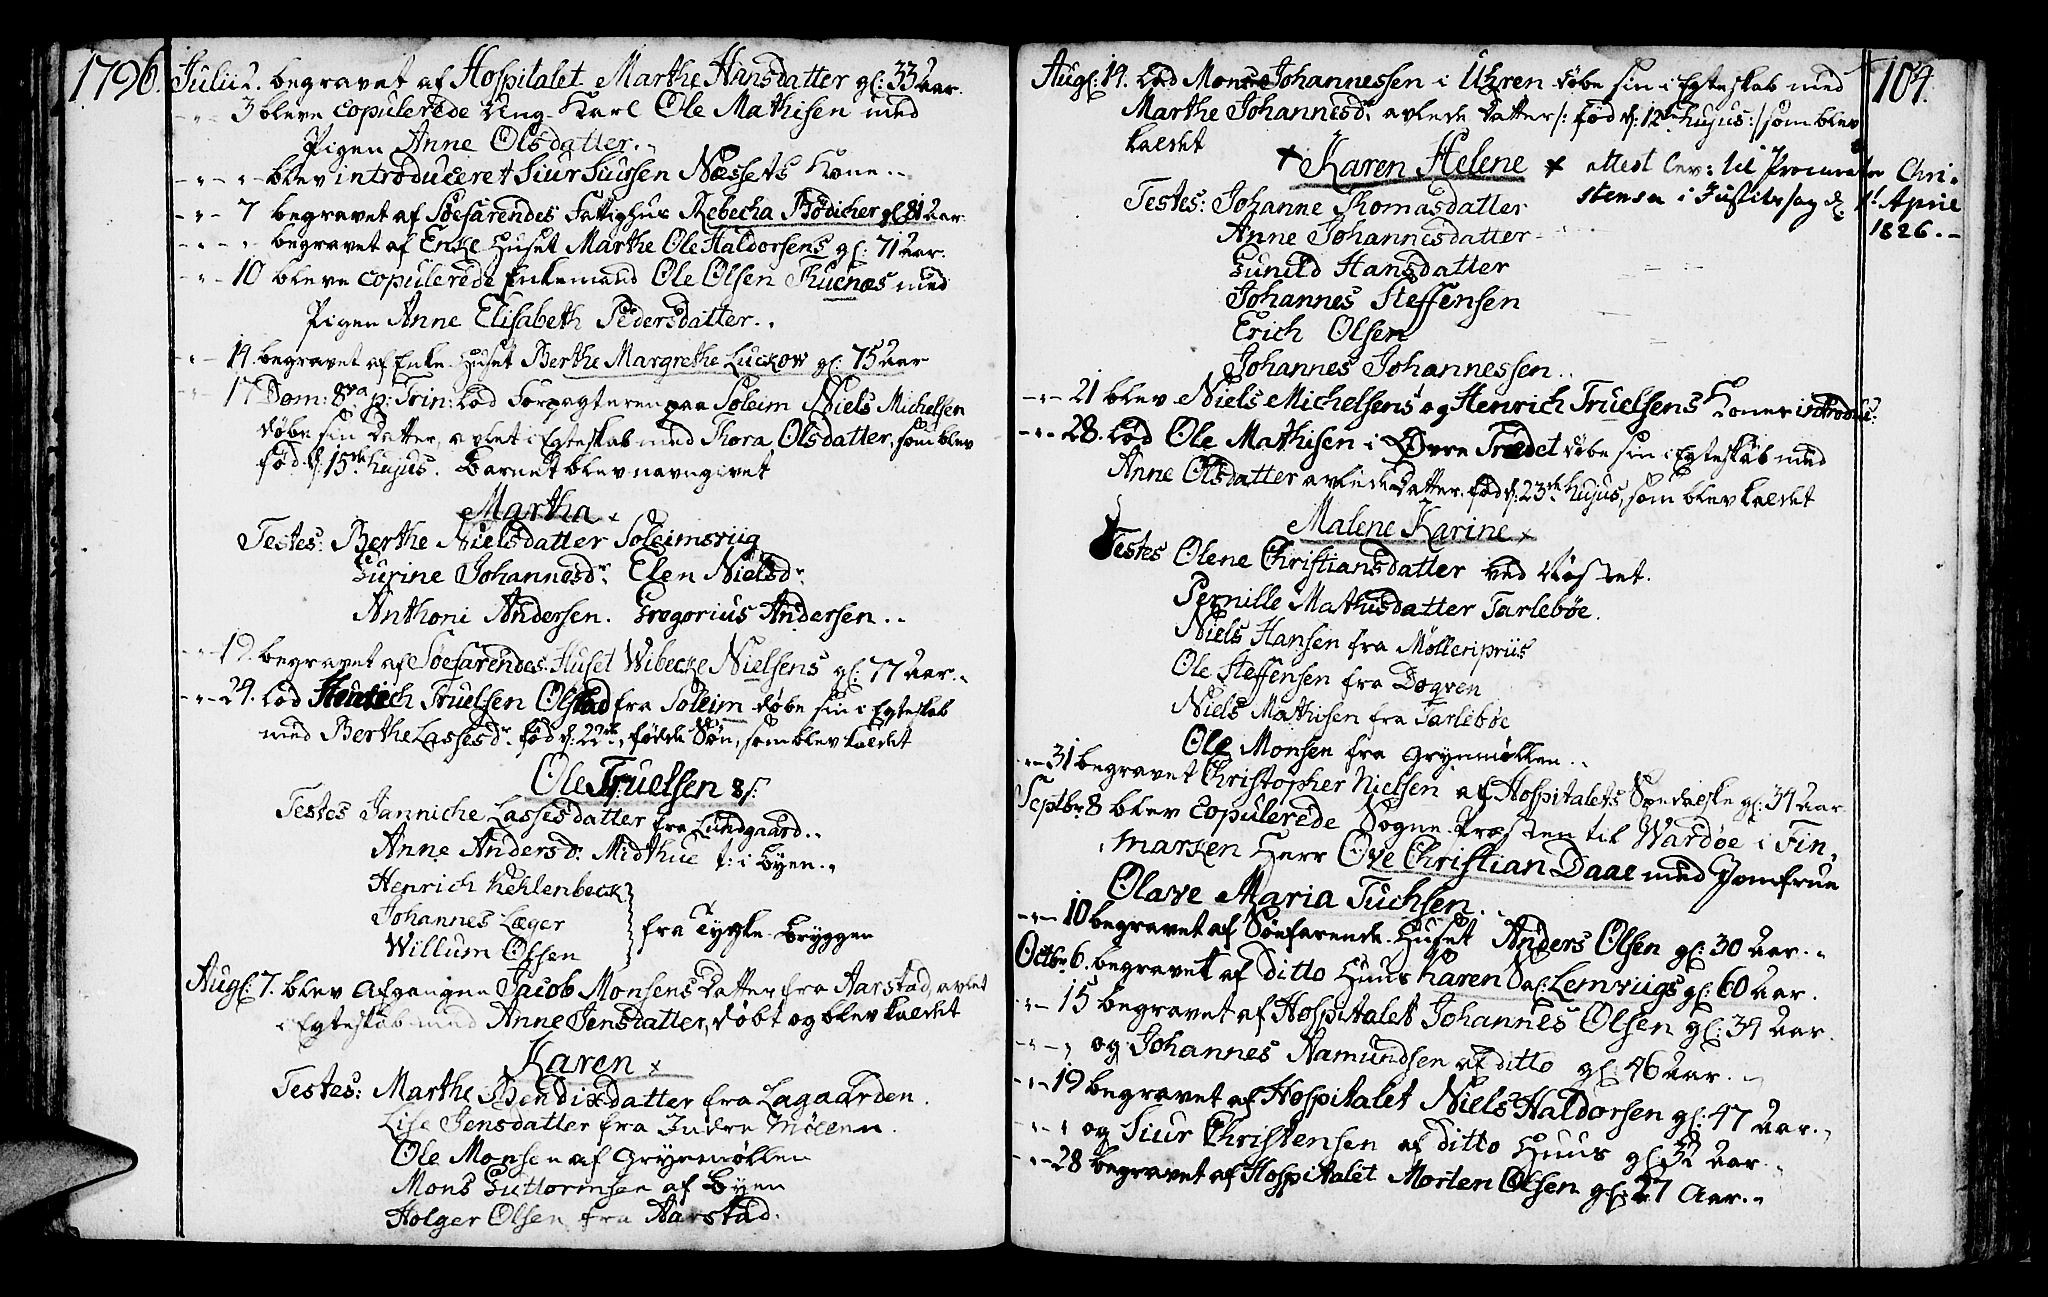 1796.
Julii 2. begravet af Hospitalet Marthe Hansdatter gl: 33 Aar.
- " - 3 bleve copulerede Ung-Karl Ole Mathisen med
Pigen Anne Olsdatter..
- " - " - blev introduceret Siur Siursen Næssets Kone..
- " - 7 begravet af Søefarendes Fattighus Rebecha Bødicher gl: 81 Aar.
- " - " begravet af Enke Huset Marthe Ole Haldorsens gl: 71 Aar.
- " - 10 bleve copulerede Enkemand Ole Olsen Thuenæs med
Pigen Anne Elisabeth Pedersdatter..
- " - 14. begravet af Enke-Huset Berthe Margrethe Luckow gl: 75 Aar
- " - 17 Dom: 8va p: Trin: lod Forpagteren paa Soleim Niels Michelsen
døbe sin Datter, avlet i Egteskab med Thora Olsdatter, som blev
fød d: 15de hujus. Barnet blev navngivet
Martha x
Testes: Berthe Nielsdatter Soleimsviig
Gurine Johannesdr. Elen Nielsdr.
Anthoni Andersen. Gregorius Andersen..
- " - 19. begravet af Søefarendes-Huset Wibecke Nielsens gl: 77 Aar..
- " - 24. lod Henrich Truelsen Olstad fra Soleim døbe sin i Egteskab
med Berthe Lassesdr. fød d: 22de, fødde Søn, som blev kaldet
Ole Truelsen
Testes Janniche Lassesdatter fra Lundgaard..
Anne Andersdr. Midthue t: i Byen..
Henrich Kehlenbeck
Johannes Læger
Willum Olsen
fra Tydske-Bryggen
Augl: 7. blev Afgangne Jacob Monsens Datter fra Aarstad, avlet
i Egteskab med Anne Jensdatter, døbt og blev kaldet
Karen x
Testes: Marthe Bendixdatter fra Lagaarden.
Lise Jensdatter fra Indre Møllen.
Ole Monsen af Grynmøllen
Mons Guttormsen af Byen
Holger Olsen fra Aarstad.
104.
Augl: 14. lod Mons Johannessen i Uhren døbe sin i Egteskab med
Marthe Johannesdr. avlede Datter /: fød d: 12te hujus :/ som blev
kaldet
x Karen Helene x attest lev: til Procurator Chri-
stensen i Justitssag d. 1t April
1826. -
Testes: Johanne Thomasdatter
Anne Johannesdatter
Gunild Hansdatter
Johannes Steffensen
Erich Olsen
Johannes Johannessen..
- " - 21 blev Niels Michelsens og Henrich Truelsens Koner introduc:
- " - 28. lod Ole Mathisen i Øvre Trædet døbe sin i Egteskab med
Anne Olsdatter avlede Datter, fød d: 23de hujus, som blev kaldet
Malene Karine x
Testes Olene Christiansdatter ved
Pernille Mathisdatter Tarlebøe.
Niels Hansen fra Mølleripriis
Ole Steffensen fra Dogven
Niels Mathisen fra Tarlebøe
Ole Monsen fra Grynmøllen..
- " - 31 begravet Christopher Nielsen af Hospitalets gl: 34 Aar
Septbr 8 blev copulerede Sogne-Præsten til Wardøe i Fin,
marken Herr Ove Christian Daae med Jomfrue
Olave Maria Tuchsen.
- " - 10 begravet af Søefarende-Huset Anders Olsen gl: 30 Aar..
Octbr 6. begravet af ditto Huus Karen Lemviigs gl: 60 Aar.
- " - 15 begravet af Hospitalet Johannes Olsen gl: 34 Aar.
- " - " og Johannes Aamundsen af ditto gl: 46 Aar.
- " - 19 begravet af Hospitalet Niels Haldorsen gl: 47 Aar..
- " - " og Siur Christensen af ditto Huus gl: 32 Aar.
- " - 28 begravet af Hospitalet Morten Olsen gl: 27 Aar..